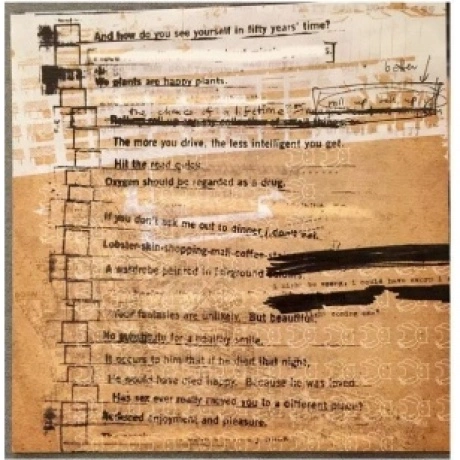 And how do you see yourself in fifty years' time?
We plants are happy plants.
better
the chance of a lifetime
roll up roll up
The more you drive, the less intelligent you get.
Hit the road quick
Oxygen should be regarded as a drug.
If you don't ask me out to dinner I don't eat.
Lobster-skin-shopping-mall-coffee
A wardrobe painted in fairground colours
i might be wrong, i could have sworn i
coming
Your fantasies are unlikely. But beautiful.
No substitute for a healthy smile.
It occurs to him that if he died that night,
He would have died happy. Because he was loved.
Has sex ever really moved you to a different planet?
Increased enjoyment and pleasure.